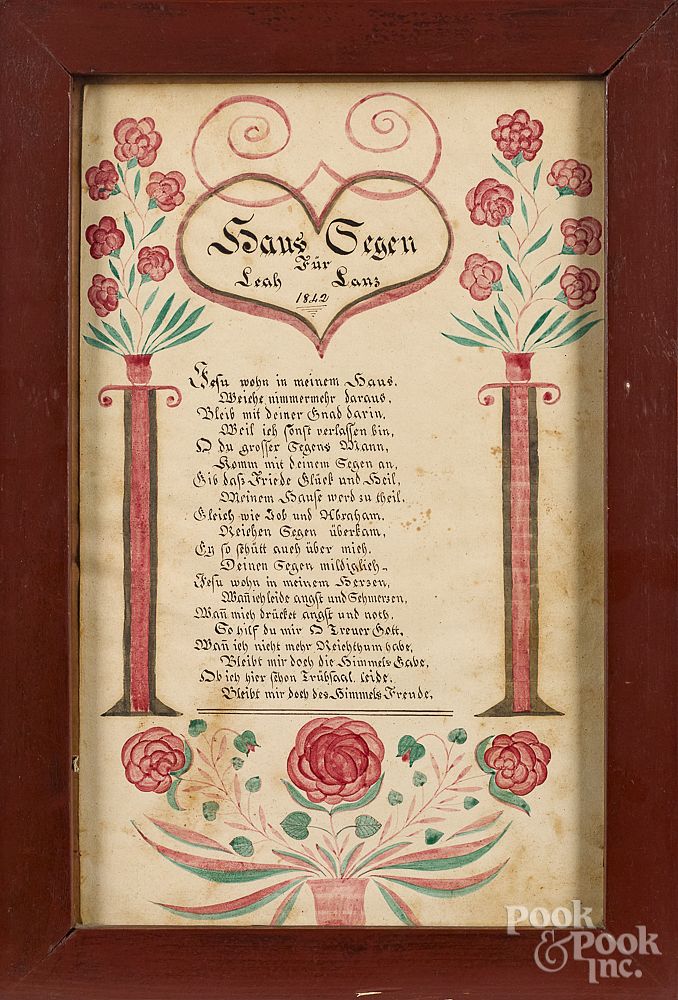 Haus Segen
Für
Leah Lanz
1842
Jesu wohn in meinem Haus.
Weiche nimmermehr daraus,
Bleib mit deiner Gnad darin,
Weil ich sonst verlassen bin,
O du grosser Segens Mann,
Komm mit deinem Segen an,
Gib daß Friede Glück und Heil,
Meinem Hause werd zu theil.
Gleich wie Job und Abraham,
Reichen Segen überkam,
Ey so schütt auch über mich.
Deinen Segen mildiglich.
Jesu wohn in meinem Herzen,
Wañ ich leide angst und Schmerzen,
Wañ mich drücket angst und noth.
So hilf du mir O Treuer Gott.
Wañ ich nicht mehr Reichthum habe,
Bleibt mir doch die Himmels Gabe,
Ob ich hier schon Trübsaal leide.
Bleibt mir doch des Himmels Freude,
POOK
& POOK
INC.